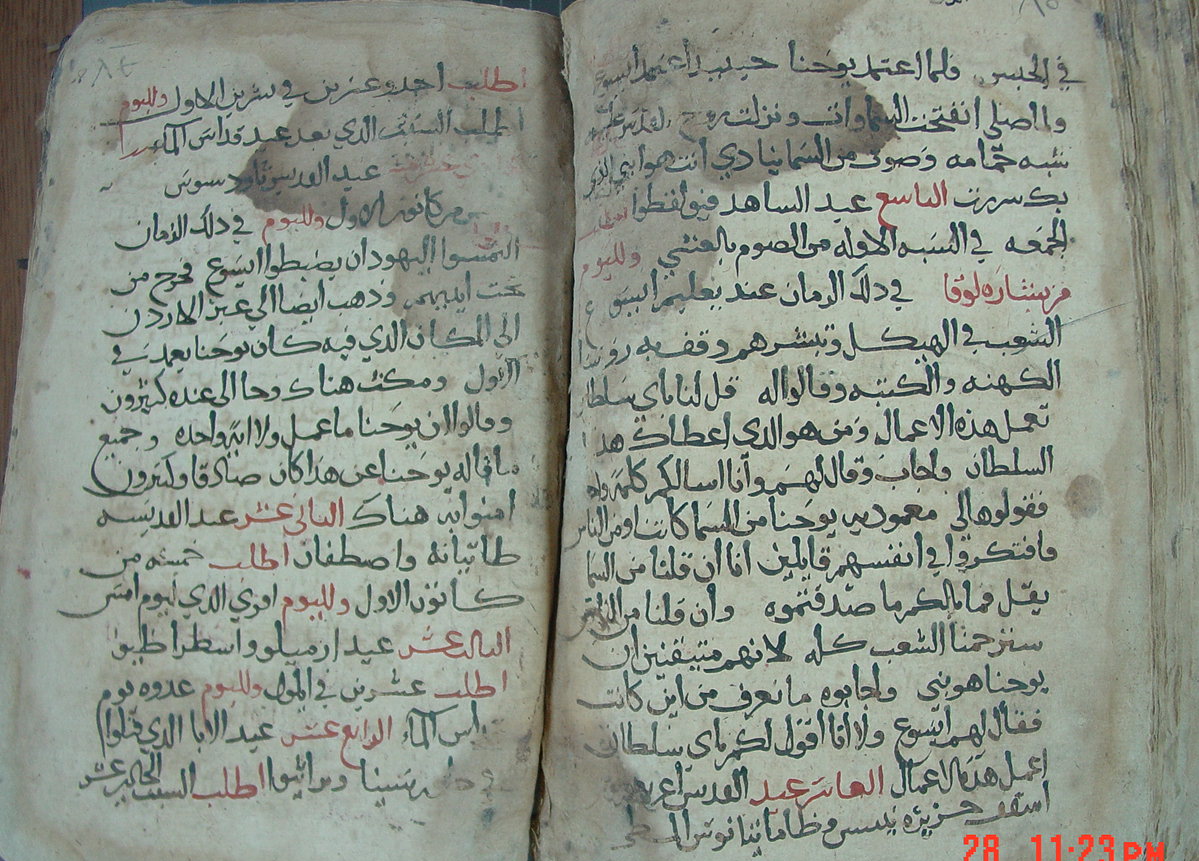 في الخميس فلما اعتمد يوحنا حيث اعتمد ايسوع
ولما صلى انفتحت السماوات ونزلت روح القدس عليه
شبه حمامه وصوت من السما ينادي انت هو ابني الذي
بك سررت التاسع عيد الساهد فيوليقطوا اطلب
الجمعه في السبه الاوله من الصوم بالعشي ولليوم
من بشاره لوقا في دلك الزمان عند تعليم ايسوع
الشعب في الهيكل وتبشرهم وقف به روسا
الكهنه والكتبه وقالوا له قل لنا باي سلطان
تعمل هذه الاعمال ومن هو الذي اعطاك هدا
السلطان واجاب وقال لهم وانا اسالكم كلمه واحده
فقولوها لي معموديه يوحنا من السما كانت او من الناس
فافتكروا في انفسهم قايلين انا ان قلنا من السما
يقل فما بالكم ما صدقتموه وان قلنا من الناس
سترجمنا الشعب كله لانهم متيقنين ان
يوحنا هو نبي واجابوه ما نعرف من اين كانت
فقال لهم ايسوع ولا انا اقول لكم باي سلطان
اعمل هذه الاعمال العاشر عيد القديس
اسقف جزيره
اطلب احد وعشرين في تشرين الاول ولليوم
اطلب السبت الذي بعد عيد قداس الماء
عيد القديس تاودسيوس
من كانون الاول ولليوم في دلك الزمان
التمسوا اليهود ان يضبطوا ايسوع فخرج من
تحت ايديهم وذهب ايضا الى عبر الاردن
الى المكان الذي فيه كان يوحنا يعمد في
الاول ومكث هناك وجا الى عنده كثيرون
وقالوا ان يوحنا ما عمل ولا ايه واحده وجميع
ما قاله يوحنا عن هذا كان صادقا وكثيرون
امنوا به هناك الثاني عشر عيد القديسه
طاتيانه واصطفان اطلب خمسه من
كانون الاول ولليوم اقري الذي ليوم امس
الثالث عشر عيد ارميلو واسطراطيق
اطلب عشرين في ايلول ولليوم غدوه يوم
قداس الماء الرابع عشر عيد الابا الذي قتلوا
في سينا وبراثيوا اطلب السبت الخامس عشر
28 11:23 PM